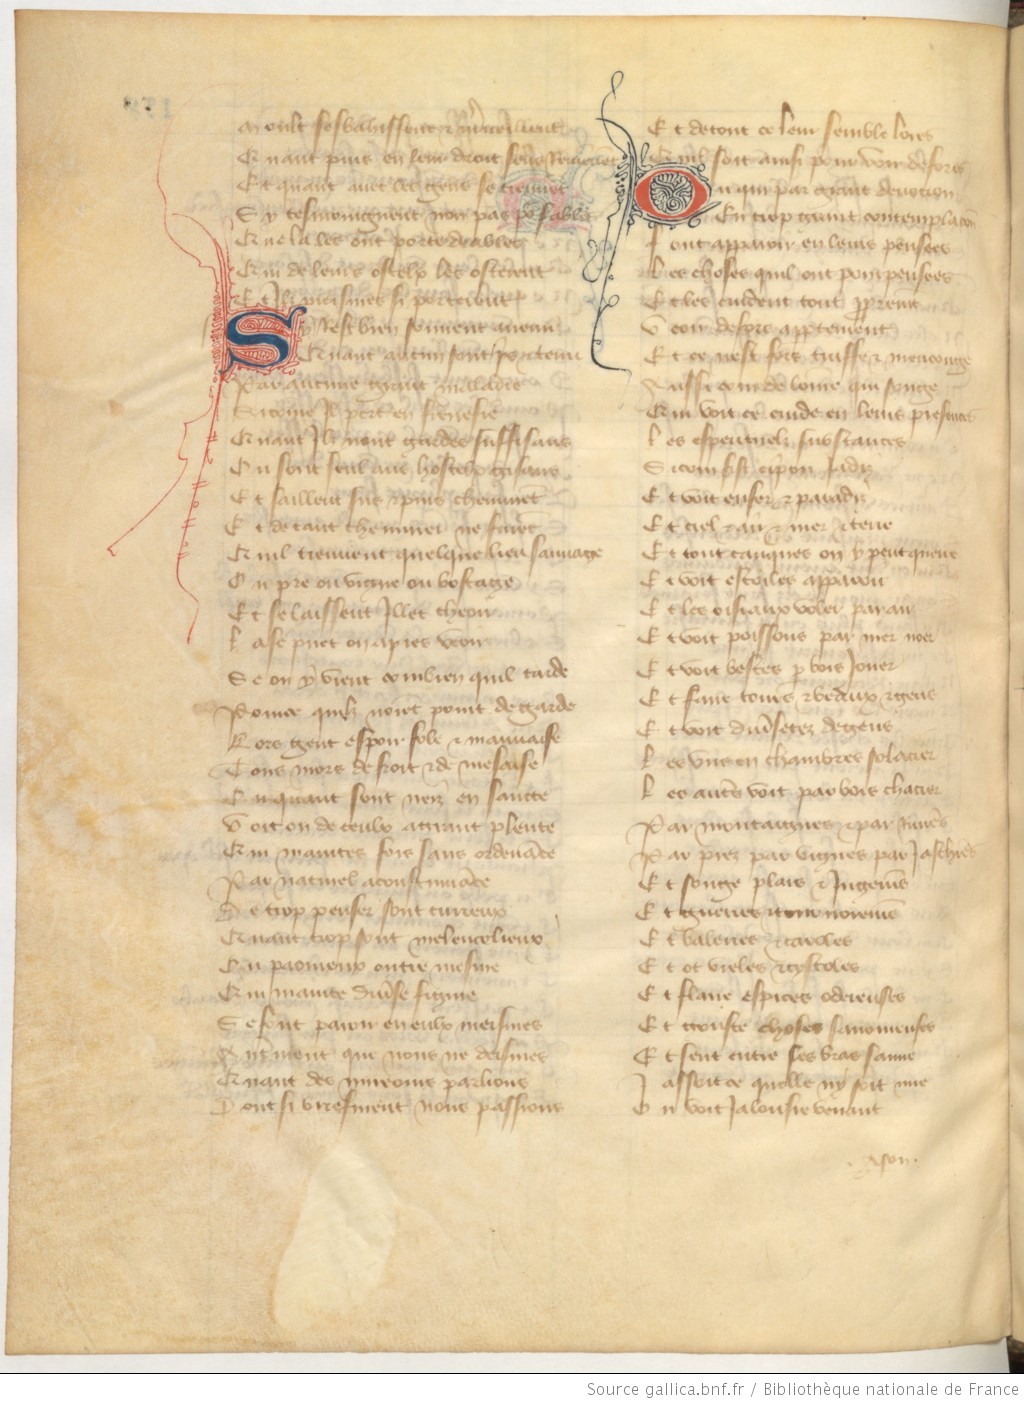 Moult sesbahissent et merveillent
Quant puis en leur droit sens
Et quant avec les gens se treuvent
Sy tesmoingnent non pas
Que la les ont porte deables
Qui de leurs ostelx les osterent
Et Ilz meismes si porterent
Sy rest bien souvent avenu
Quant aucun sont pour tenu
Par aucune grant maladie
Si come Il pert en frenesie
Quant Ilz nont gardes suffisans
Ou sont seulz aux hostelx gisans
Et saillent sus et puis cheminet
Et de tant cheminer ne finet
Quil treuvent quelque lieu sauvage
Ou pre ou vigne ou boscage
Et se laissent Illec cheoir
La se puet on apres veoir
Se on y vient combien quil tarde
Pource quilz noiet point de garde
Fors gent espoir fole et mauvaise
Tous mors de froit et de mesaise
Ou quant sont neiz en sancte
Voit on de ceulx a grant plente
Qui maintes fois sans ordenance
Par naturel acoustumance
De trop penser sont curieux
Quant trop sont melencolieux
Ou paoureux outre mesure
Qui mainte divse figure
Se font paroir en eulx meismes
Autrment que nous ne deismes
Quant des mireoirs parlions
Dont si briefment nous passions
Et de tout ce leur semble lors
Quil soit ainsi pour voir defors
Ou qui par grant devotion
En trop grant contemplacon
Font apparoir en leurs pensees
Les choses quil ont pourpensees
Et les cuident tout pprement
Veoir defors appertement
Et ce nest fors truffe et mencouge
Aussi com de lome qui songe
Qui voit ce cuide en leurs presences
Les espirituelz substances
Si com fist cipion Jadiz
Et voit enfer et paradiz
Et ciel et air et mer et terre
Et tout canques on y peut querre
Et voit estoiles apparoir
Et les oiseaux voler par air
Et voit poissons par mer noer
Et voit bestes p bois Jouer
Et faire tours et beaux et gens
Et voit divsetez de gens
Les uns en chambres solacier
Les autrs voit par bois chacier
Par montaignes et par rivieres
Par prez par vignes par Jachieres
Et songe plais et Jugemes
Et guerres et tournoiemes
Et baleries et caroles
Et ot vieles et cystoles
Et flaire espices odereuses
Et gouste choses savoureuses
Et sent entre ses bras samie
Ja soit ce quelle ny soit mie
Ou voit Jalousie venant
Source gallica.bnf.fr / Bibliothèque nationale de France